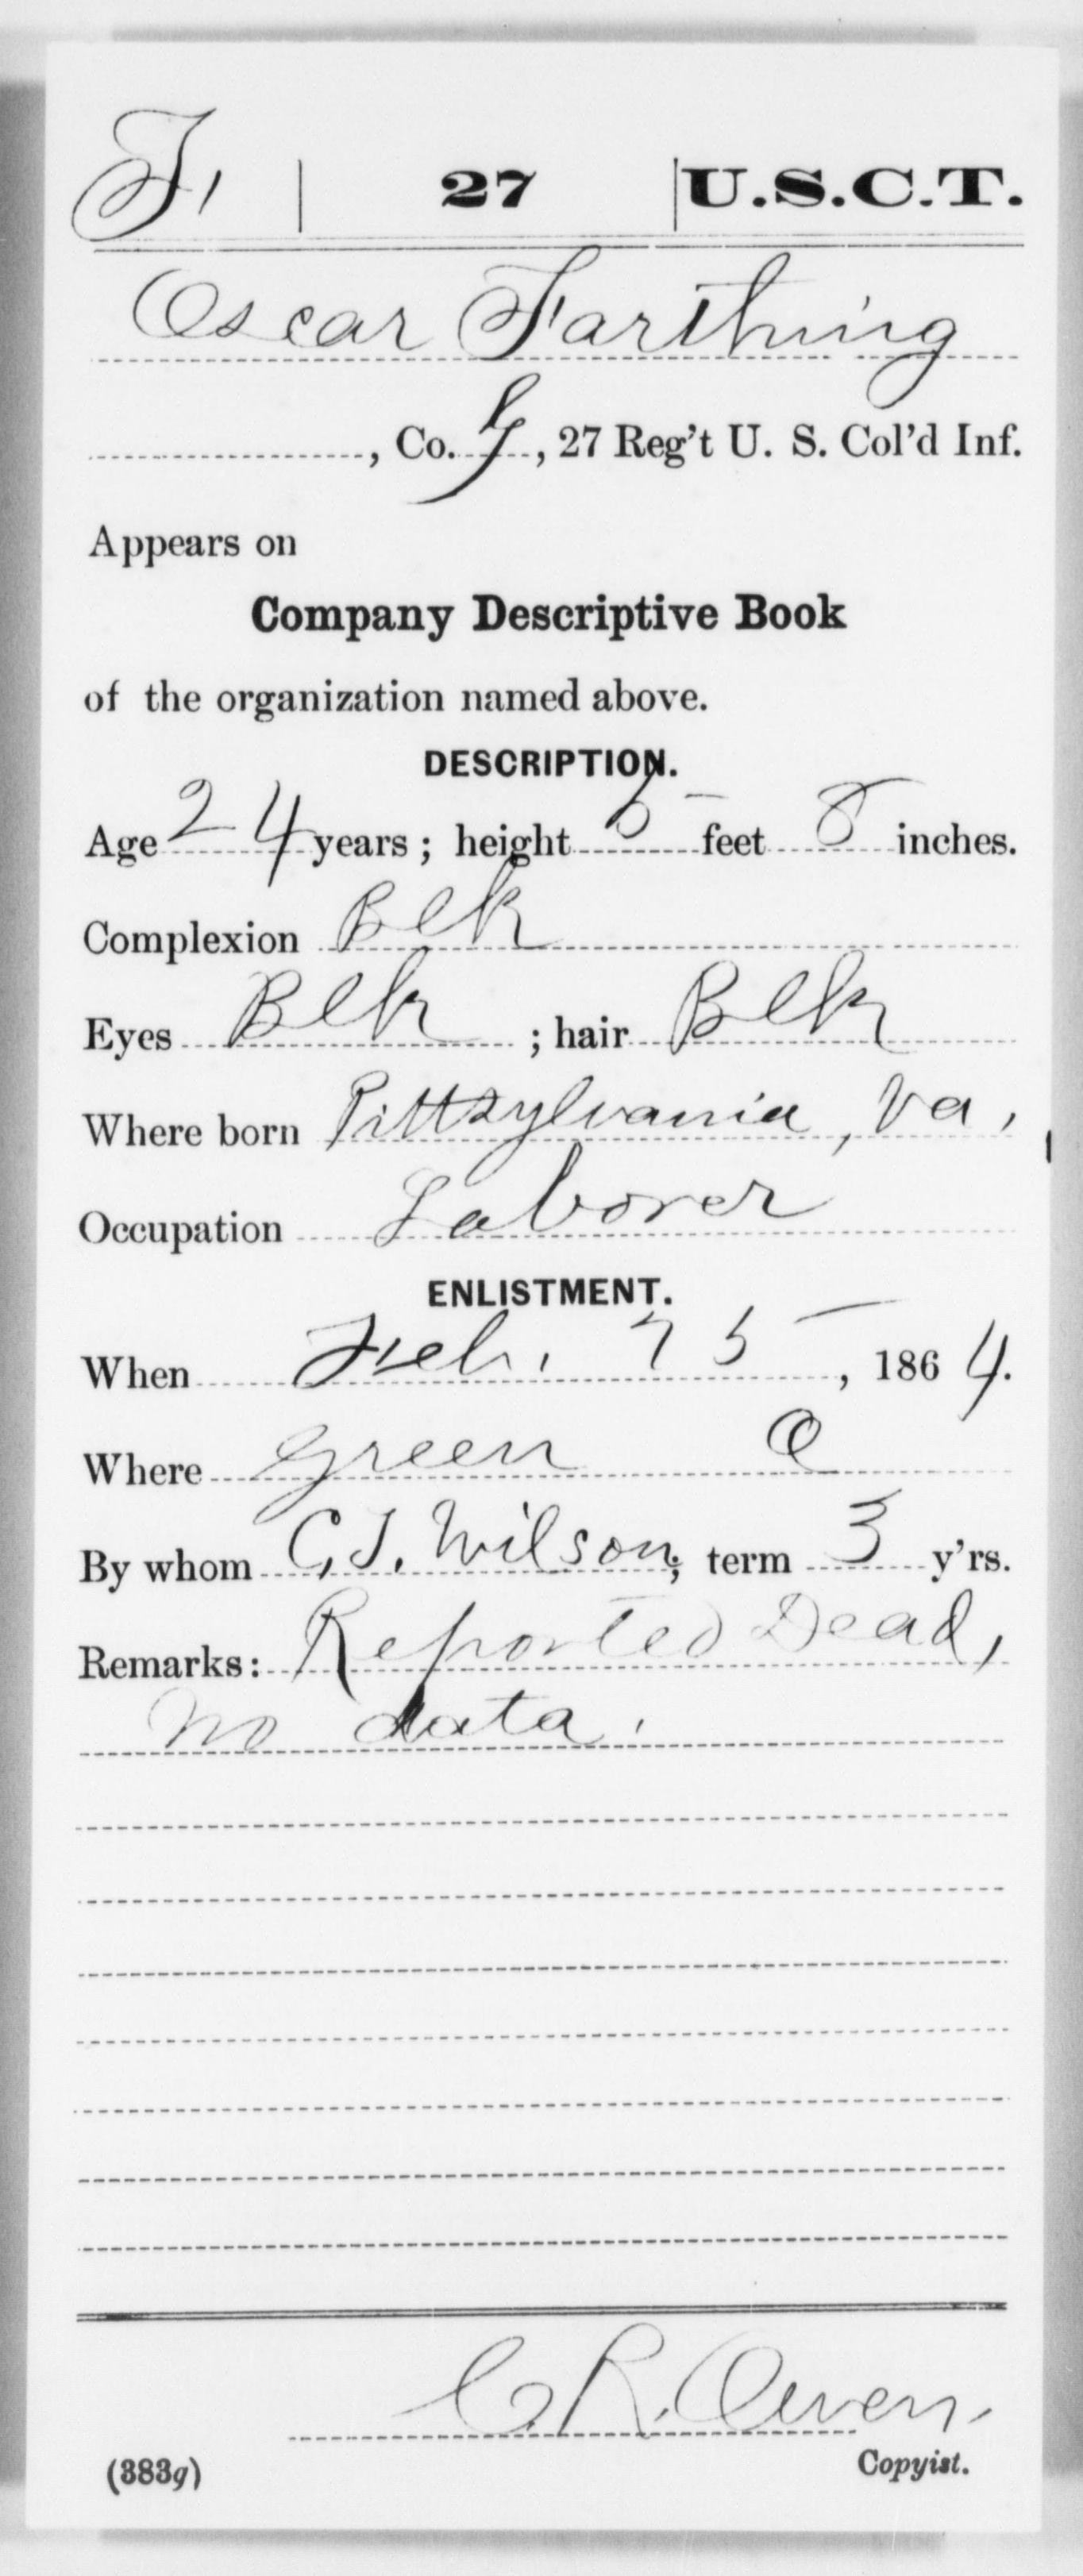 F | 27 | U.S.C.T.
Oscar Farthing
, Co. G, 27 Reg't U. S. Col'd Inf.
Appears on
Company Descriptive Book
of the organization named above.
DESCRIPTION.
Age 24 years; height 5 feet 8 inches.
Complexion Blk
Eyes Blk ; hair Blk
Where born Pittsylvania, Va.
Occupation Laborer
ENLISTMENT.
When Feb. 25, 1864.
Where Green O
By whom C.J. Wilson; term 3 y'rs.
Remarks: Reported Dead,
no data.
C.R. Owen.
(383g) Copyist.